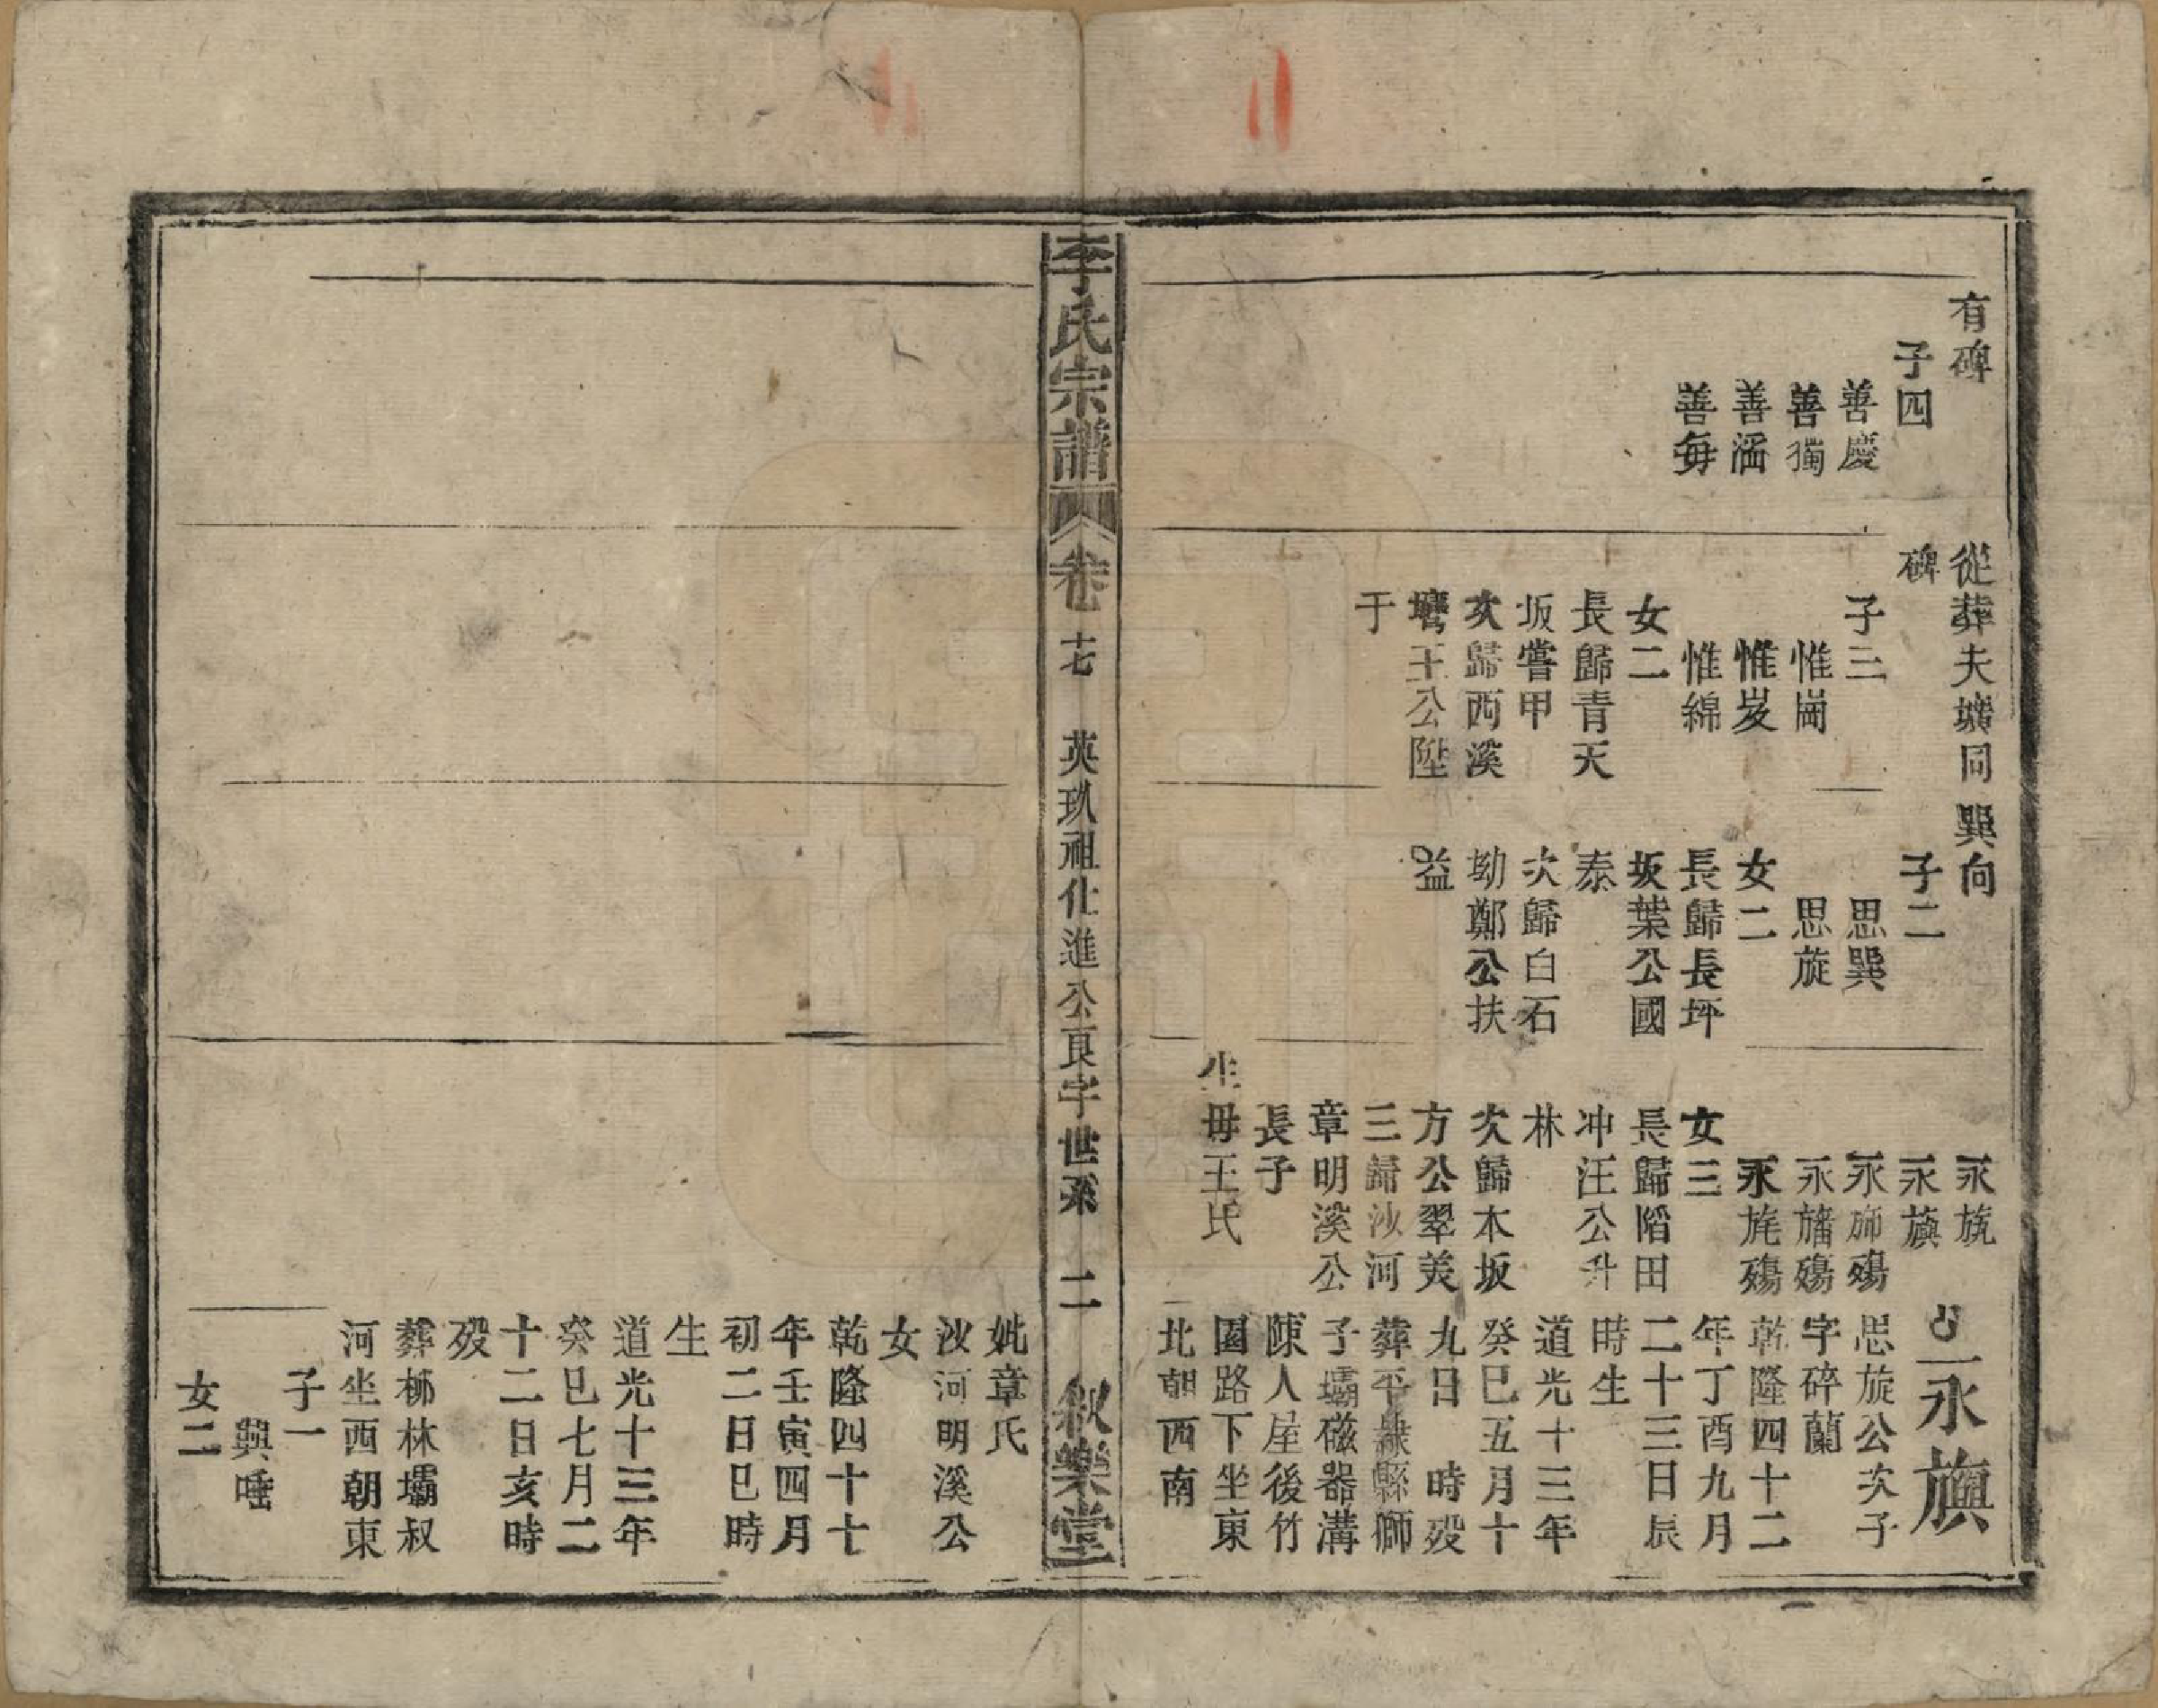 有碑
子四
善慶
善獨
善滔
善每
從葬夫壙同
碑
子三
惟崗
惟岌
惟綿
女二
長歸青天
坂嘗甲
次歸西溪
王公陞
于
巽向
子二
思巽
思旋
女二
長歸長坪
坂葉公國
泰
次歸白石
坳鄭公扶
益
永旒
永旟
永殤
永旛殤
永旄殤
女三
長歸陷田
冲汪公升
林
次歸木坂
方公翠美
三歸沙河
章明溪公
長子
生母王氏
永旟
思旋公次子
字碎蘭
乾隆四十二
年丁酉九月
二十三日辰
時生
道光十三年
癸巳五月十
九日 時歿
葬平縣獅
子壩磁器溝
陳人屋後竹
園路下坐東
北朝西南
李氏宗譜 卷十七 英玖祖仕進公良字世系 二 敘樂堂
妣章氏
沙河明溪公
女
乾隆四十七
年壬寅四月
初二日巳時
生
道光十三年
癸巳七月二
十二日亥時
歿
葬柳林壩叔
河坐西朝東
子一
興唾
女二